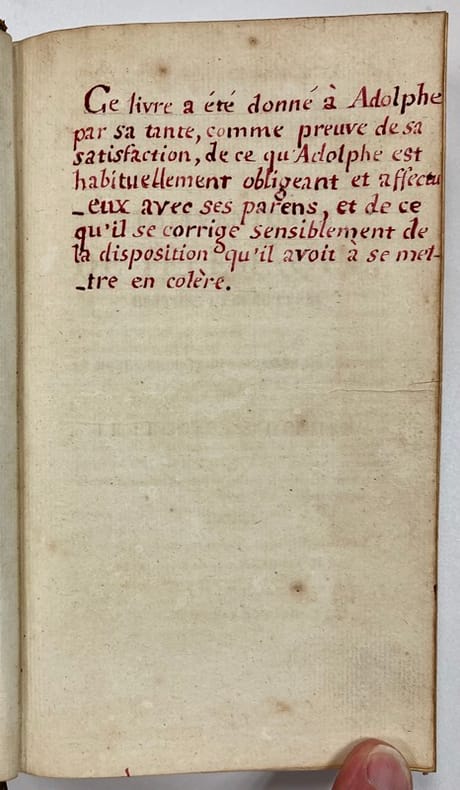 Ce livre a été donné à Adolphe
par sa tante, comme preuve de sa
satisfaction, de ce qu'Adolphe est
habituellement obligeant et affectu
-eux avec ses parens, et de ce
qu'il se corrige sensiblement de
la disposition qu'il avoit à se met-
-tre en colère.